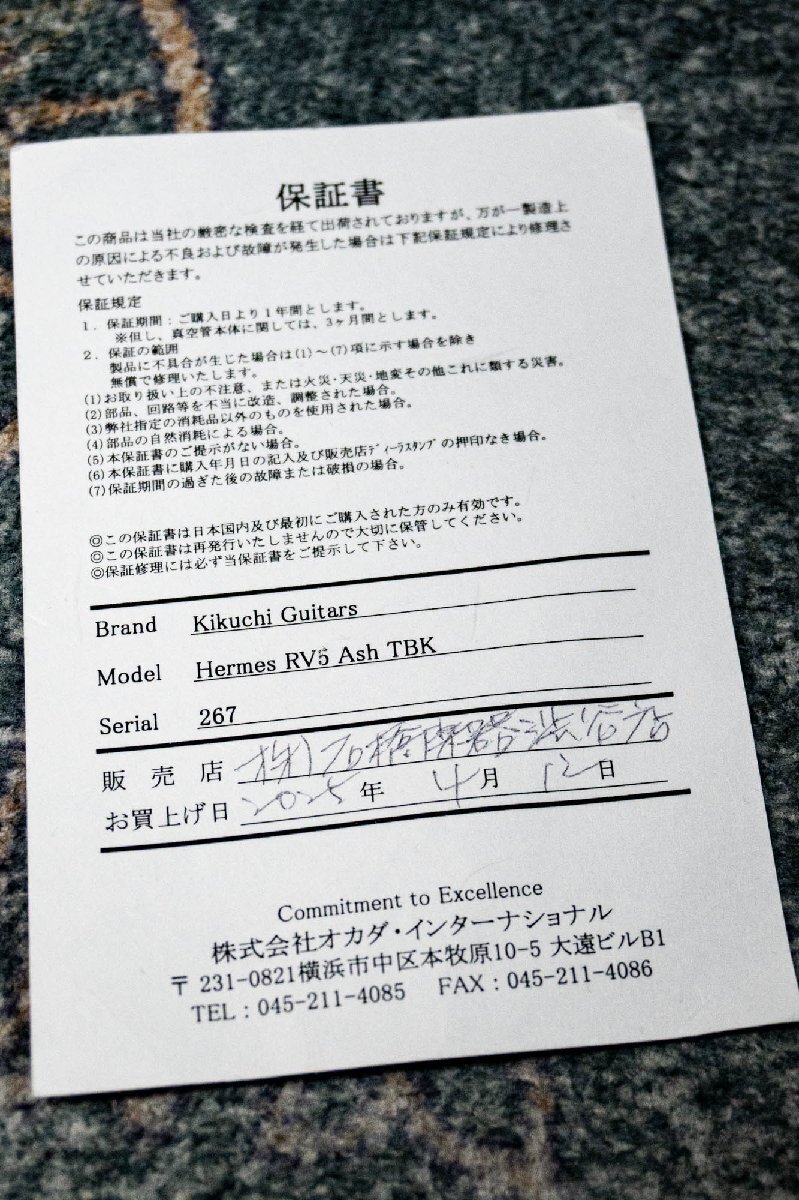 保証書
この商品は当社の厳密な検査を経て出荷されておりますが、万が一製造上
の原因による不良および故障が発生した場合は下記保証規定により修理さ
せていただきます。
保証規定
1．保証期間：ご購入日より1年間とします。
※但し、真空管本体に関しては、3ヶ月間とします。
2．保証の範囲
製品に不具合が生じた場合は(1)～(7)項に示す場合を除き
無償で修理いたします。
(1)お取り扱い上の不注意、または火災・天災・地変その他これに類する災害。
(2)部品、回路等を不当に改造、調整された場合。
(3)弊社指定の消耗品以外のものを使用された場合。
(4)部品の自然消耗による場合。
(5)本保証書のご提示がない場合。
(6)本保証書に購入年月日の記入及び販売店ﾃﾞｨｰﾗｽﾀﾝﾌﾟの押印なき場合。
(7)保証期間の過ぎた後の故障または破損の場合。
◎この保証書は日本国内及び最初にご購入された方のみ有効です。
◎この保証書は再発行いたしませんので大切に保管してください。
◎保証修理には必ず当保証書をご提示して下さい。
Brand Kikuchi Guitars
Model Hermes RV5 Ash TBK
Serial 267
販売店 (株)石橋楽器渋谷店
お買上げ日 2025年 4月 12日
Commitment to Excellence
株式会社オカダ・インターナショナル
〒231-0821横浜市中区本牧原10-5 大遠ビルB1
TEL：045-211-4085 FAX：045-211-4086